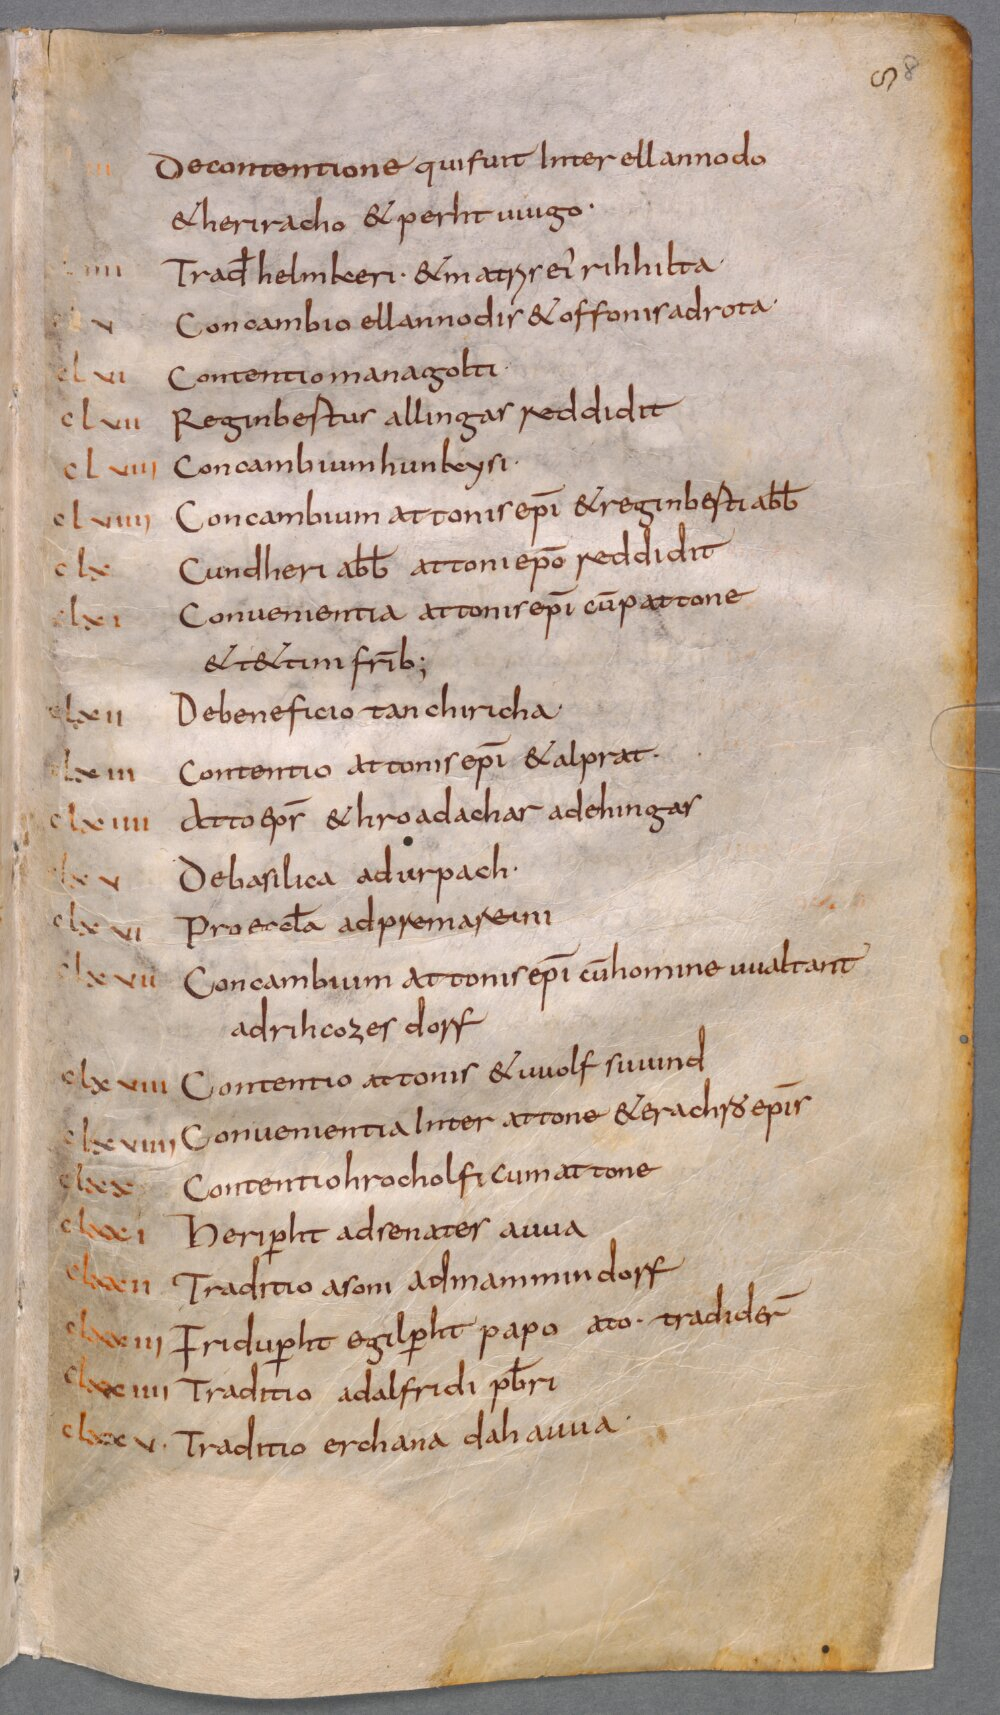 8
iii De contentione qui fuit Inter ellannodo
& heriracho & perht uuigo.
iiii Trad helmkeri. & matris ei' rihhilta
v Concambio ellannodis & offonis ad rota
cl vi Contentio managolti
cl vii Reginbestus allingas reddidit
cl viii Concambium hunkysi.
cl viiii Concambium attonis ep̄i & reginbesti abb̄
clx Cundheri abb̄ attoni ep̄o reddidit
clxi Conuenientia attonis ep̄i cū pattone
& t&tini fr̄ib;
clxii De beneficio tanchiricha
clxiii Contentio attonis ep̄i & alprat.
clxiiii Atto ep̄s & hroadachar ad ehingas
clxv De basilica ad urpach.
clxvi Pro eccła ad premareini
clxvii Concambium attonis ep̄i cū homine uualtant
ad rihcozes dorf
clxviii Contentio attonis & uuolf suuind
clxviiii Conuenientia Inter attone & erachar ep̄is
clxx Contentio hrocholfi cum attone
clxxi Heripht ad senates auua
clxxii Traditio asoni ad mammindorf
clxxiii Fridupht egilpht papo ato. tradider̄
clxxiiii Traditio adalfridi pb̄ri
clxxv. Traditio erchana dahauua.